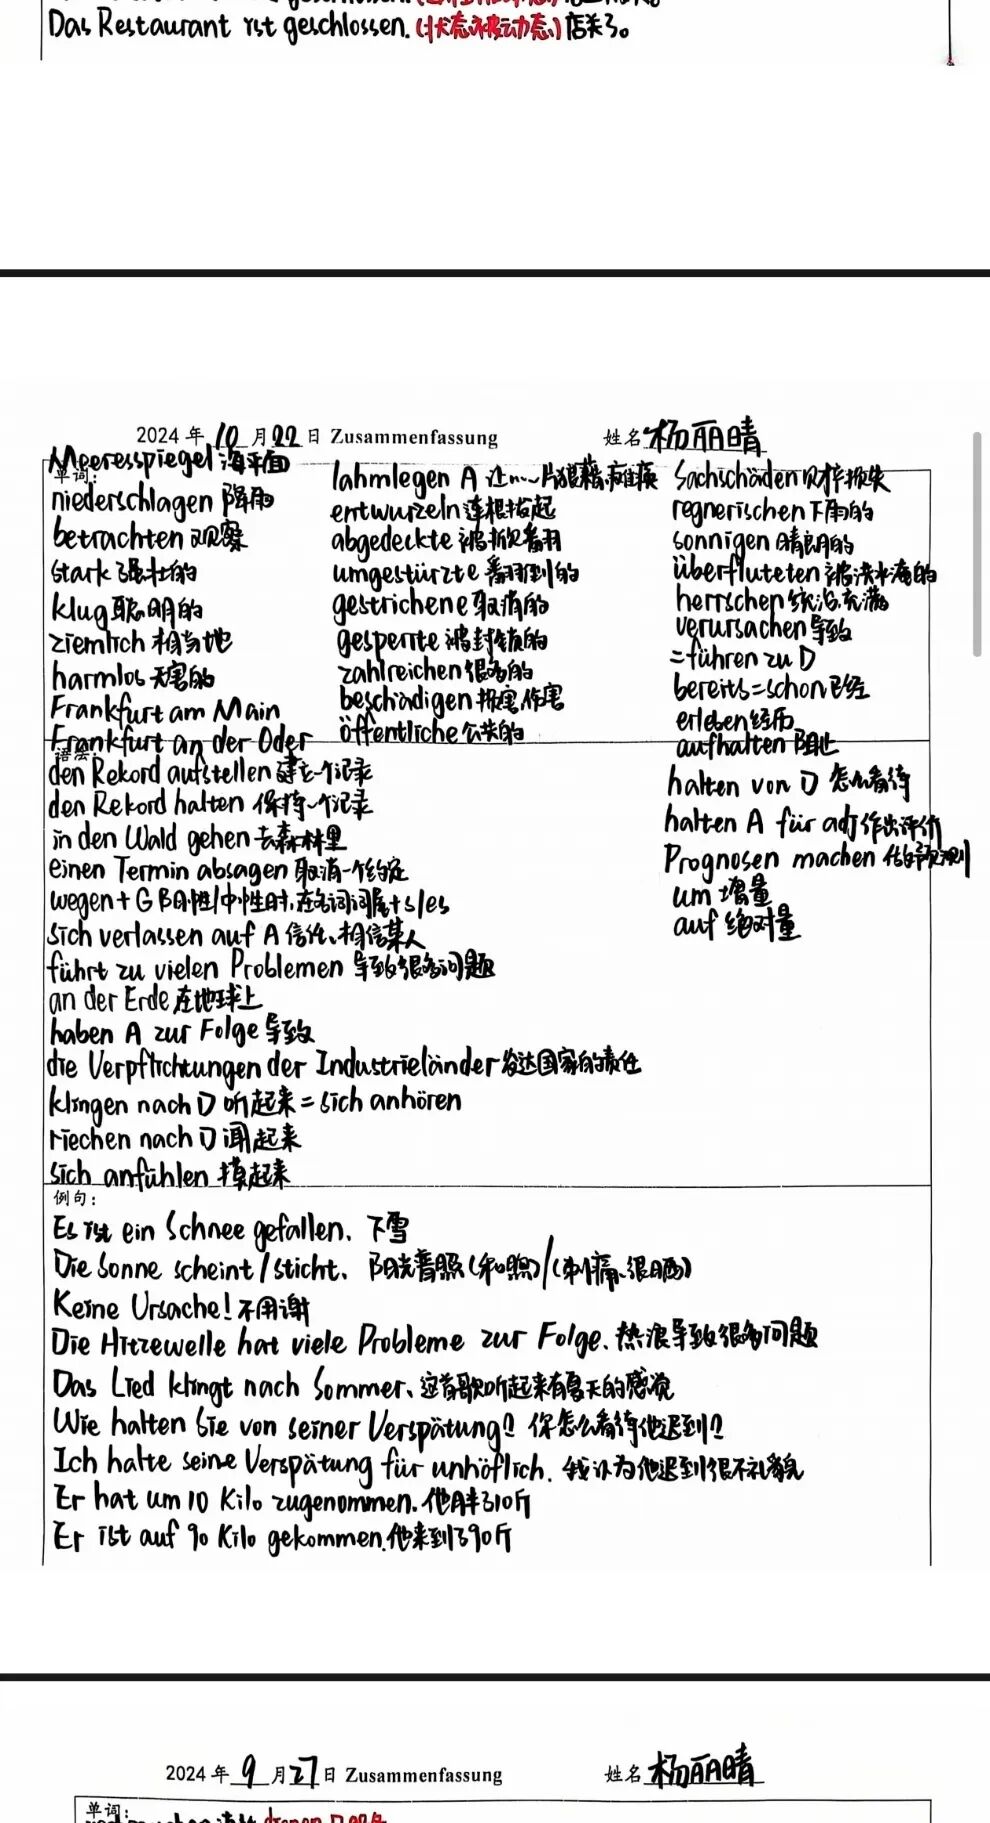 Das Restaurant ist geschlossen. (状态被动态) 店关了。
2024 年 10 月 22 日 Zusammenfassung 姓名 杨丽晴
单词:
Meeresspiegel 海平面
niederschlagen 降雨
betrachten 观察
stark 强壮的
klug 聪明的
ziemlich 相当地
harmlos 无害的
Frankfurt am Main
Frankfurt an der Oder
lahmlegen A 让……片狼藉,瘫痪
entwurzeln 连根拔起
abgedeckte 被掀翻
umgestürzte 翻倒的
gestrichene 取消的
gesperrte 被封锁的
zahlreichen 很多的
beschädigen 损害,伤害
öffentliche 公共的
Sachschäden 财物损失
regnerischen 下雨的
sonnigen 晴朗的
überfluteten 被洪水淹的
herrschen 统治,充满
verursachen 导致
=führen zu D
bereits=schon 已经
erleben 经历
aufhalten 阻止
halten von D 怎么看待
halten A für adj 作出评价
Prognosen machen 做预测
um 增量
auf 绝对量
语法:
den Rekord aufstellen 建立一个记录
den Rekord halten 保持一个记录
in den Wald gehen 去森林里
einen Termin absagen 取消一个约定
wegen + G 阳性/中性时,在名词词尾+s/es
sich verlassen auf A 信任,相信某人
führt zu vielen Problemen 导致很多问题
an der Erde 在地球上
haben A zur Folge 导致
die Verpflichtungen der Industrieländer 发达国家的责任
klingen nach D 听起来 = sich anhören
riechen nach D 闻起来
sich anfühlen 摸起来
例句:
Es ist ein Schnee gefallen. 下雪
Die Sonne scheint / sticht. 阳光普照(和煦)/(刺痛,很晒)
Keine Ursache! 不用谢
Die Hitzewelle hat viele Probleme zur Folge. 热浪导致很多问题
Das Lied klingt nach Sommer. 这首歌听起来有夏天的感觉
Wie halten Sie von seiner Verspätung? 你怎么看待他迟到?
Ich halte seine Verspätung für unhöflich. 我认为他迟到很不礼貌
Er hat um 10 Kilo zugenommen. 他胖了10斤
Er ist auf 90 Kilo gekommen. 他来到了90斤
2024 年 9 月 27 日 Zusammenfassung 姓名 杨丽晴
单词: